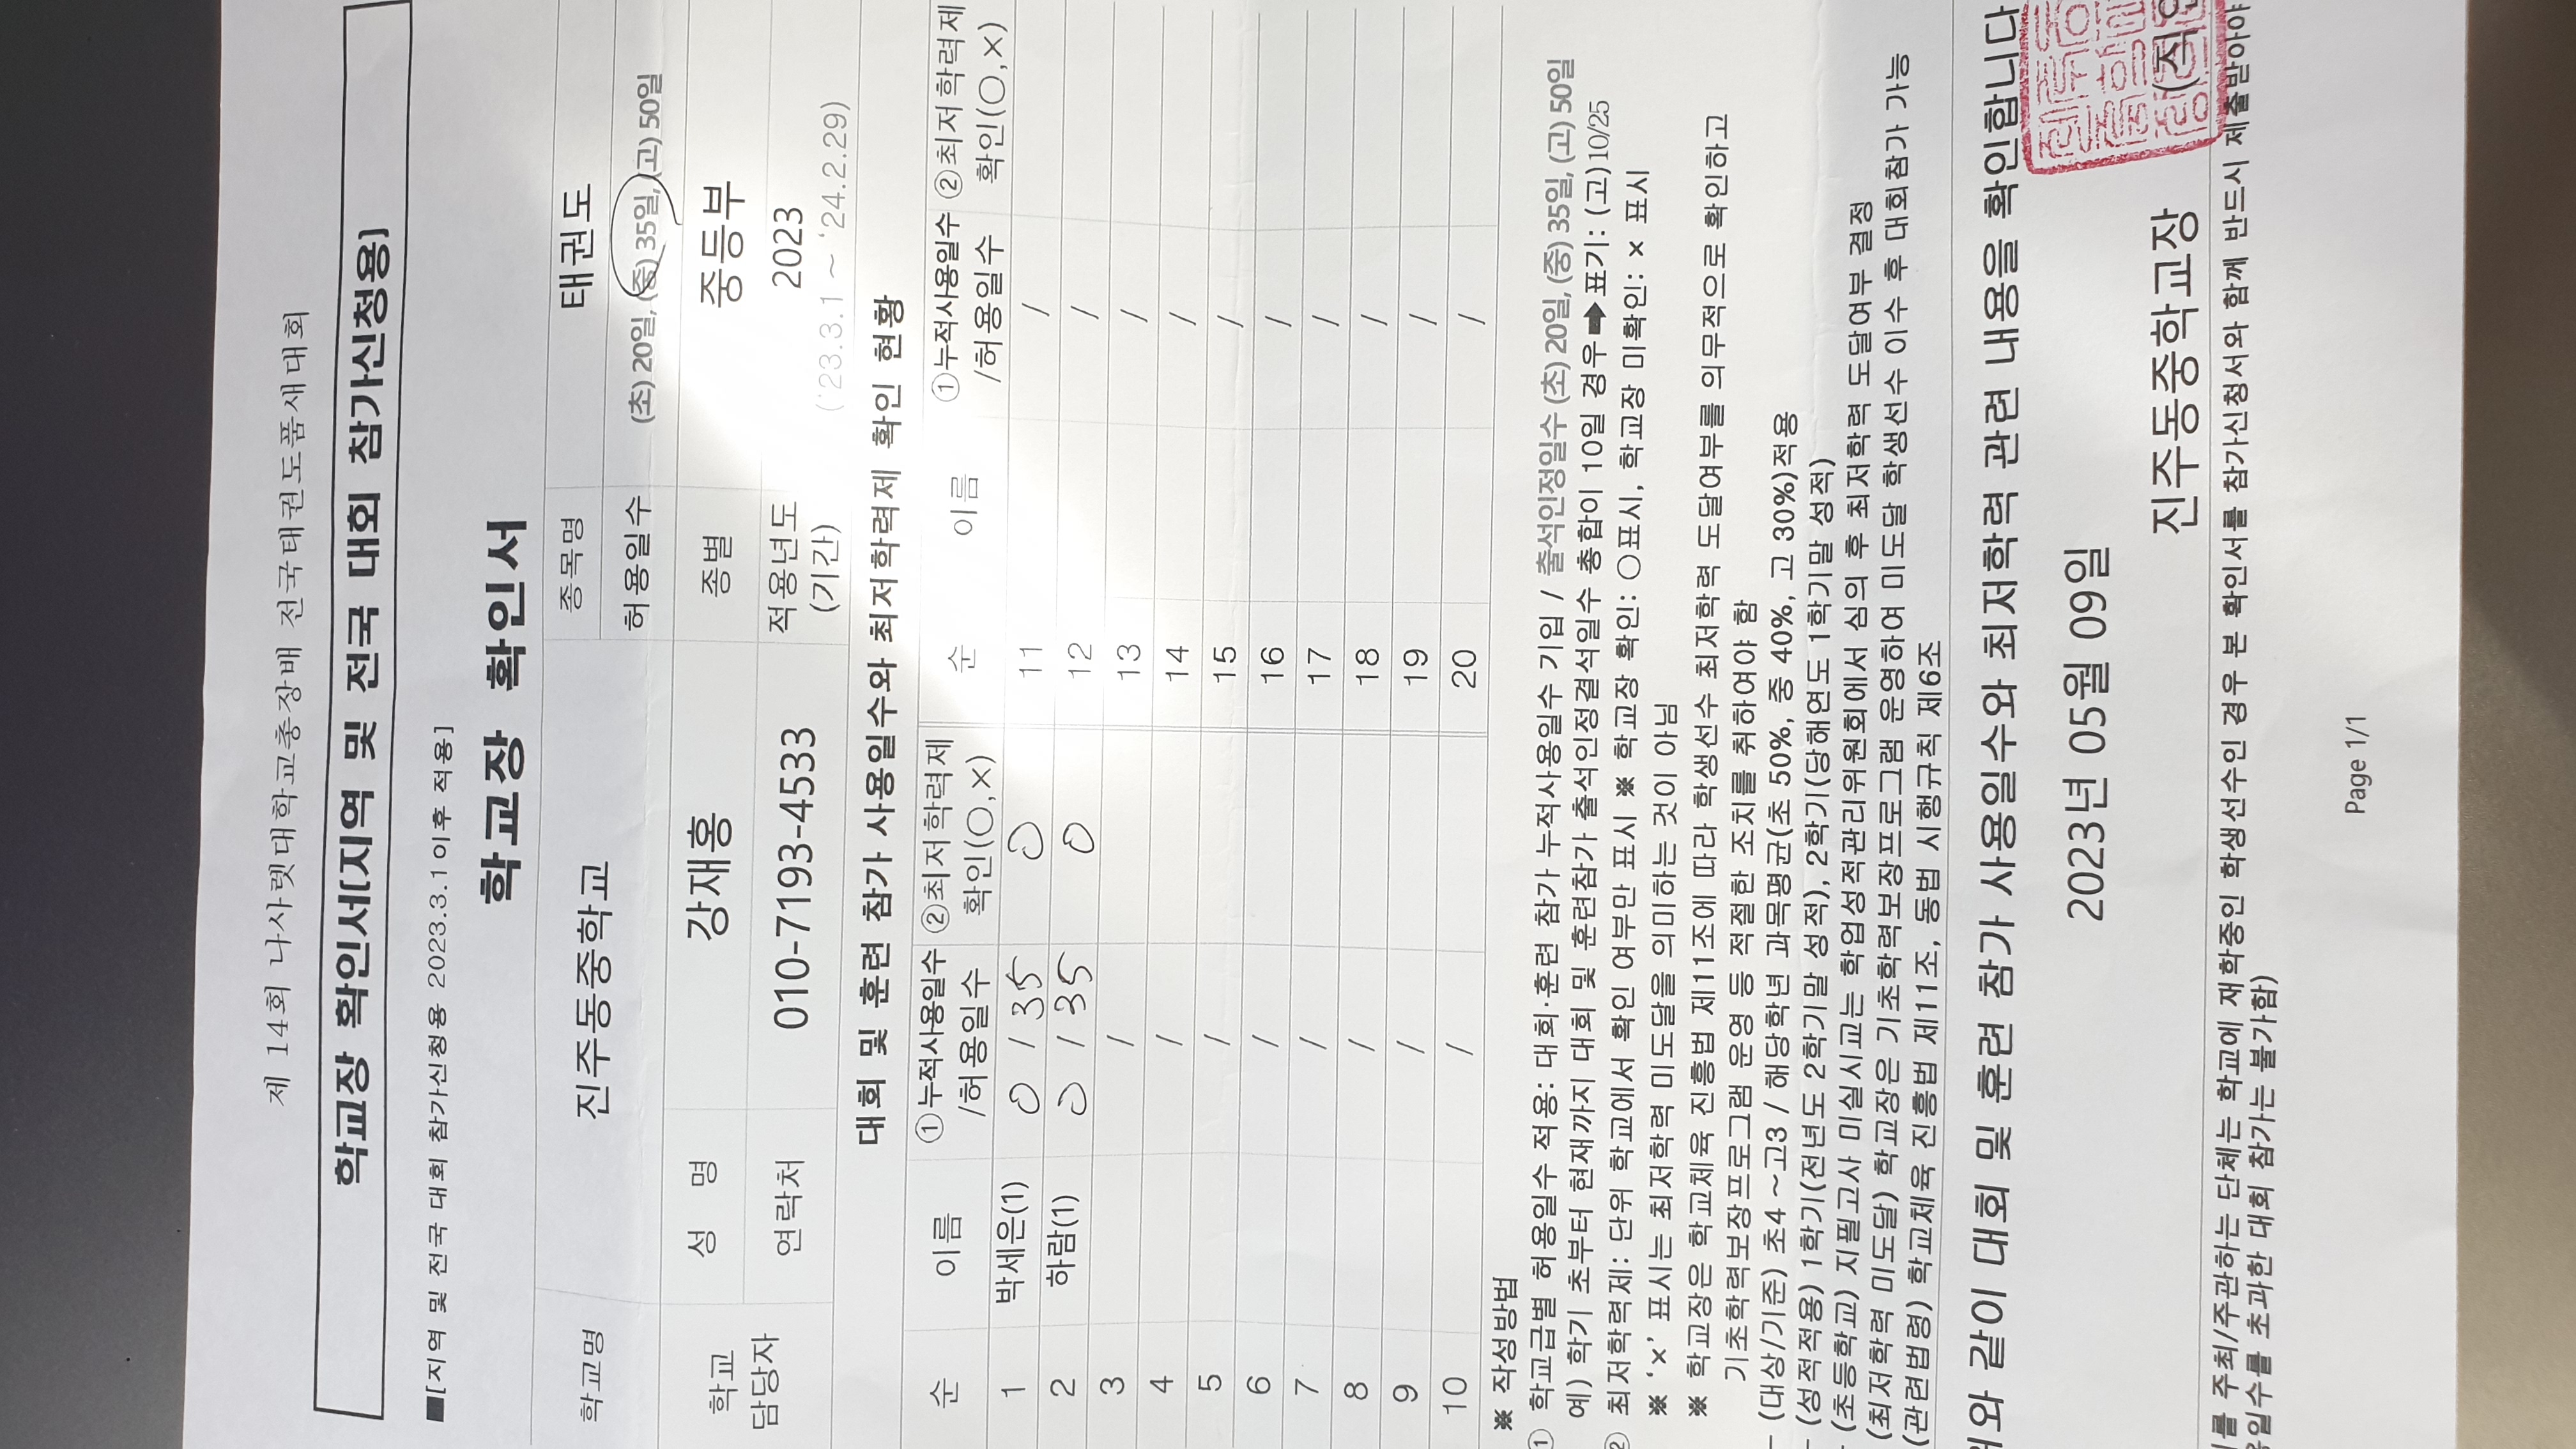 제 14회 나사렛대학교총장배 전국태권도품새대회
학교장 확인서[지역 및 전국 대회 참가신청용]
■[지역 및 전국 대회 참가신청용 2023.3.1이후 적용]
학교장 확인서
학교명 진주동중학교 종목명 태권도
허용일수 (초) 20일, (중) 35일, (고) 50일
학교 담당자 성 명 강재홍 종별 중등부
연락처 010-7193-4533 적용년도 (기간) 2023 ('23.3.1 ~ '24.2.29)
대회 및 훈련 참가 사용일수와 최저학력제 확인 현황
순 이름 ①누적사용일수 /허용일수 ②최저학력제 확인(○,×) 순 이름 ①누적사용일수 /허용일수 ②최저학력제 확인(○,×)
1 박세은(1) 0 / 35 ○ 11 /
2 하람(1) 0 / 35 ○ 12 /
3 / 13 /
4 / 14 /
5 / 15 /
6 / 16 /
7 / 17 /
8 / 18 /
9 / 19 /
10 / 20 /
※ 작성방법
① 학교급별 허용일수 적용: 대회·훈련 참가 누적사용일수 기입 / 출석인정일수 (초) 20일, (중) 35일, (고) 50일
예) 학기 초부터 현재까지 대회 및 훈련참가 출석인정결석일수 총합이 10일 경우➡표기: (고)10/25
② 최저학력제: 단위 학교에서 확인 여부만 표시 ※ 학교장 확인: ○표시, 학교장 미확인: × 표시
※ '×' 표시는 최저학력 미도달을 의미하는 것이 아님
※ 학교장은 학교체육 진흥법 제11조에 따라 학생선수 최저학력 도달여부를 의무적으로 확인하고
기초학력보장프로그램 운영 등 적절한 조치를 취하여야 함
- (대상/기준) 초4 ~고3 / 해당학년 과목평균(초 50%, 중 40%, 고 30%)적용
- (성적적용) 1학기(전년도 2학기말 성적), 2학기(당해연도 1학기말 성적)
- (초등학교) 지필고사 미실시교는 학업성적관리위원회에서 심의 후 최저학력 도달여부 결정
(최저학력 미도달) 학교장은 기초학력보장프로그램 운영하여 미도달 학생선수 이수 후 대회참가 가능
(관련법령) 학교체육 진흥법 제11조, 동법 시행규칙 제6조
위와 같이 대회 및 훈련 참가 사용일수와 최저학력 관련 내용을 확인합니다
2023년 05월 09일
진주동중학교장 (직인
주최/주관하는 단체는 학교에 재학중인 학생선수인 경우 본 확인서를 참가신청서와 함께 반드시 제출받아야
초과한 대회 참가는 불가함)
Page 1/1